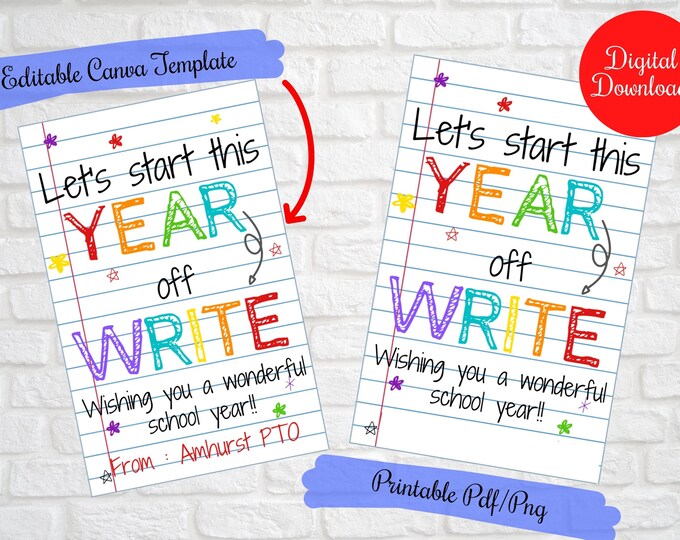 Editable Canva Template
Let's start this
YEAR
off
WRITE
Wishing you a wonderful
school year!!
From : Amhurst PTO
Digital
Download
Let's start this
YEAR
off
WRITE
Wishing you a wonderful
school year!!
Printable Pdf/Png